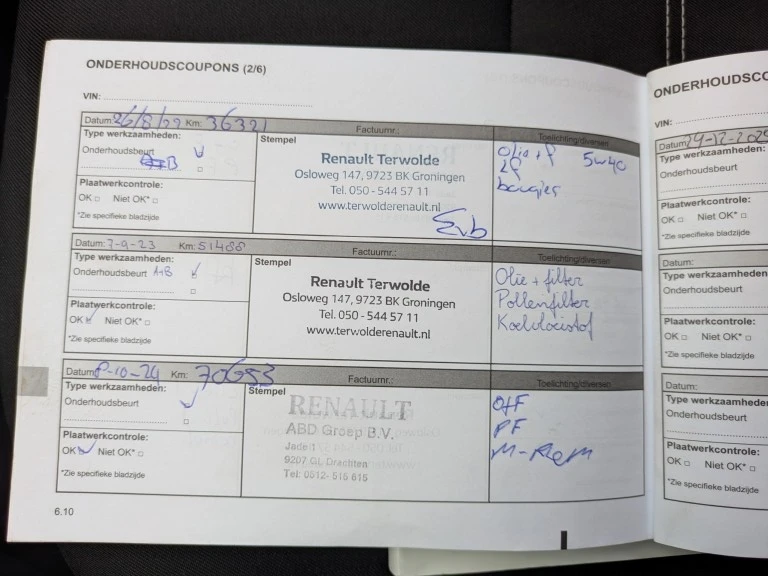 ONDERHOUDSCOUPONS (2/6)
VIN:
Datum: 26/8/22 Km: 36321 Factuurnr.: Toelichting/diversen
Type werkzaamheden:
Onderhoudsbeurt
B
Plaatwerkcontrole:
OK □ Niet OK* □
*Zie specifieke bladzijde
Stempel
Renault Terwolde
Osloweg 147, 9723 BK Groningen
Tel. 050 - 544 57 11
www.terwolderenault.nl
Olie + F 5w40
LF
bougies
Datum: 7-9-23 Km: 51488 Factuurnr.: Toelichting/diversen
Type werkzaamheden:
Onderhoudsbeurt A+B
Plaatwerkcontrole:
OK Niet OK* □
*Zie specifieke bladzijde
Stempel
Renault Terwolde
Osloweg 147, 9723 BK Groningen
Tel. 050 - 544 57 11
www.terwolderenault.nl
Olie + filter
Pollenfilter
Koelvloeistof
Datum: 8-10-24 Km: 70653 Factuurnr.: Toelichting/diversen
Type werkzaamheden:
Onderhoudsbeurt
Plaatwerkcontrole:
OK Niet OK* □
*Zie specifieke bladzijde
Stempel
RENAULT
ABD Groep B.V.
Jade 1
9207 GL Drachten
Tel: 0512- 515 615
O+F
PF
M-Rem
6.10
ONDERHOUDSC
VIN:
Datum: 24-12-202
Type werkzaamheden
Onderhoudsbeurt
Plaatwerkcontrole:
OK □ Niet OK* □
*Zie specifieke bladzijde
Datum:
Type werkzaamheden
Onderhoudsbeurt
Plaatwerkcontrole:
OK □ Niet OK* □
*Zie specifieke bladzijde
Datum:
Type werkzaamheden
Onderhoudsbeurt
Plaatwerkcontrole:
OK □ Niet OK* □
*Zie specifieke bladzijde